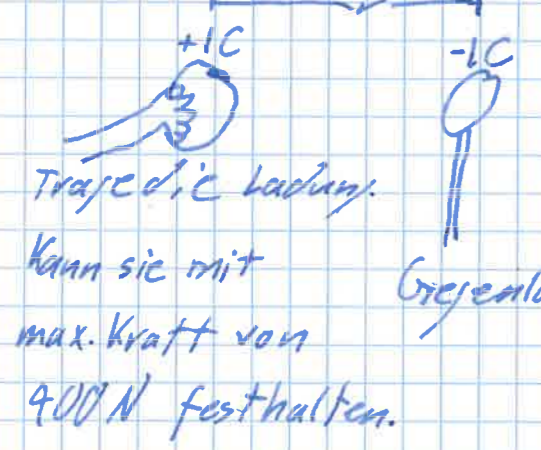 +1C
-1C
Trage die Ladung.
Kann sie mit
max. Kraft von
400N festhalten.